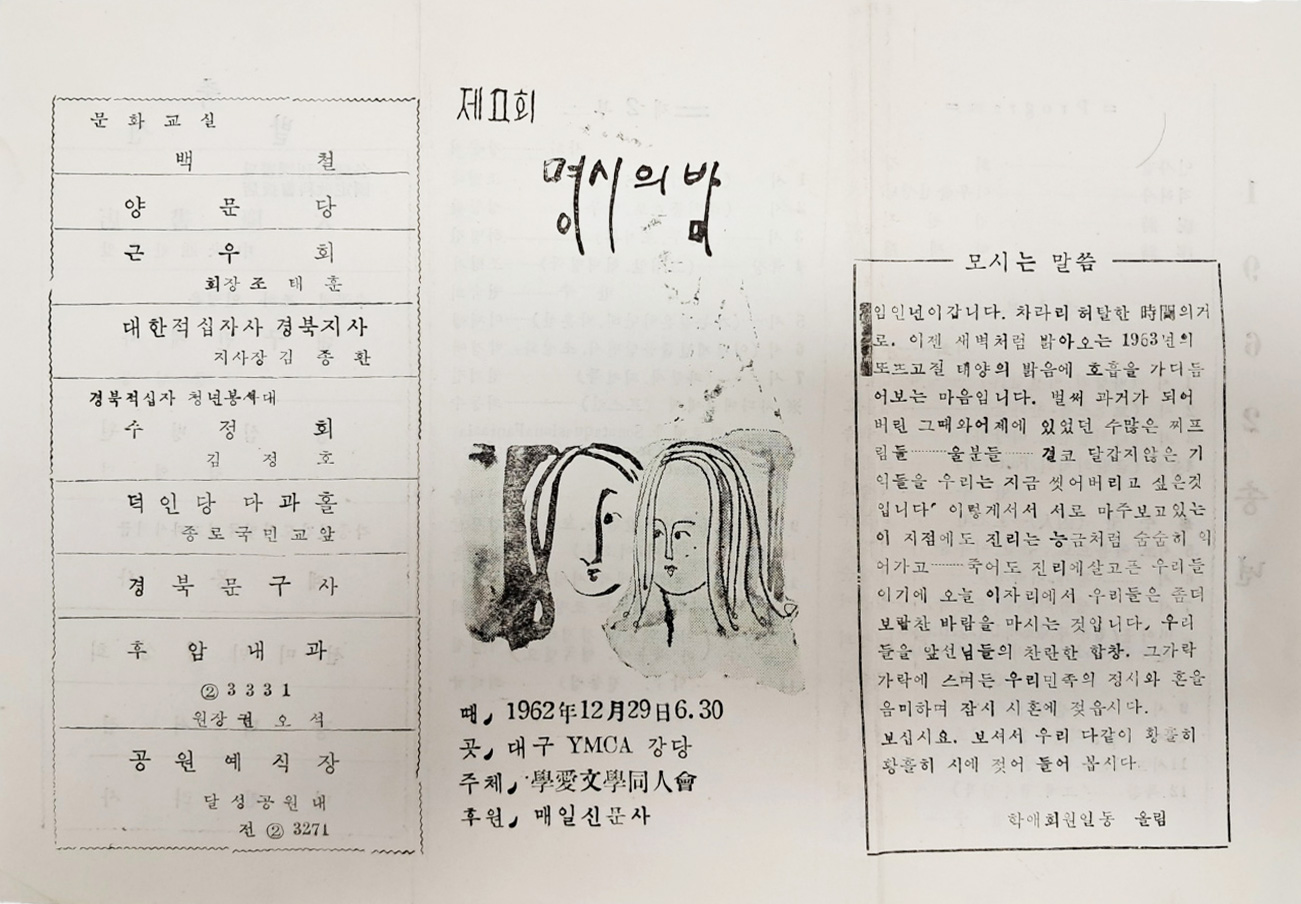 문화교실
백 철
양 문 당
근 우 회
회장 조 태 훈
대한적십자사 경북지사
지사장 김 종 환
경북적십자 청년봉사대
수 정 회
김 정 호
덕인당 다과홀
종로국민교앞
경 북 문 구 사
후 암 내 과
② 3331
원장 권 오 석
공 원 예 식 장
달성공원내
전 ② 3271
제Ⅱ회
명시의 밤
때, 1962年12月29日6.30
곳, 대구 YMCA 강당
주체, 學愛文學同人會
후원, 매일신문사
모시는 말씀
임인년이갑니다. 차라리 허탈한 時間의거
로. 이젠 새벽처럼 밝아오는 1963년의
또뜨고질 태양의 밝음에 호흡을 가디듬
어보는 마음입니다. 벌써 과거가 되어
버린 그때와어제에 있었던 수많은 찌프
림들……울분들…… 결코 달갑지않은 기
억들을 우리는 지금 씻어버리고 싶은것
입니다" 이렇게서서 서로 마주보고있는
이 지점에도 진리는 능금처럼 숨숨히 익
어가고……죽어도 진리에살고픈 우리들
이기에 오늘 이자리에서 우리들은 좀더
보람찬 바람을 마시는 것입니다, 우리
들을 앞선님들의 찬란한 합창. 그가락
가락에 스며든 우리민족의 정시와 혼을
음미하며 잠시 시혼에 젖읍시다.
보십시요. 보셔서 우리 다같이 황홀히
황홀히 시에 젖어 들어 봅시다
학애회원일동 올림